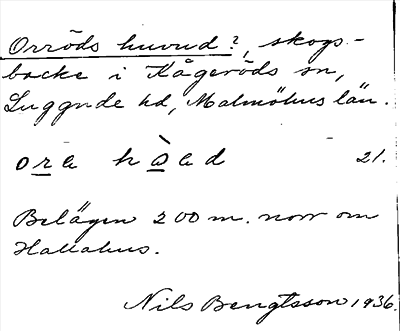 Orröds huvud?, skogs-
backe i Kågeröds sn,
Luggude hd, Malmöhus län.
ore hàed 21.
Belägen 200 m. norr om
Hallahus.
Nils Bengtsson 1936.